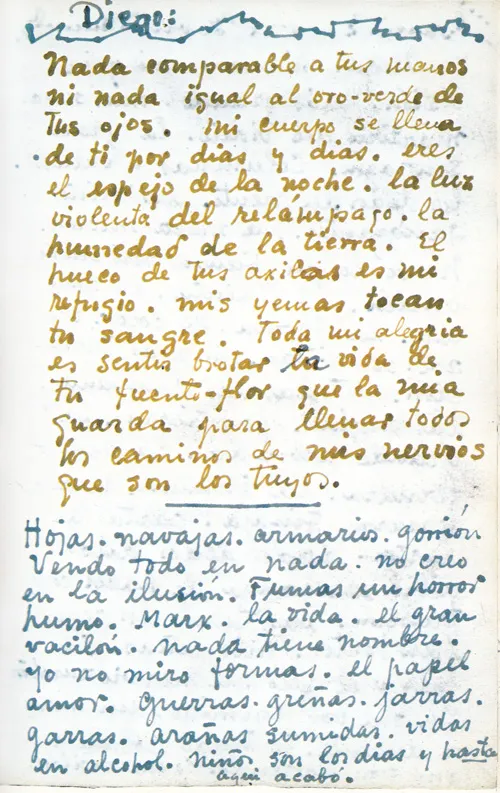 Diego:
Nada comparable a tus manos
ni nada igual al oro-verde de
tus ojos. mi cuerpo se llena
de ti por dias y dias. eres
el espejo de la noche. la luz
violenta del relámpago. la
humedad de la tierra. El
hueco de tus axilas es mi
refugio. mis yemas tocan
tu sangre. Toda mi alegria
es sentir brotar la vida de
tu fuente-flor que la mia
guarda para llenar todos
los caminos de mis nervios
que son los tuyos.
Hojas. navajas. armarios. gorrión
Vendo todo en nada. no creo
en la ilusión. Fumas un horror
humo. Marx. la vida. el gran
vacilón. nada tiene nombre.
yo no miro formas. el papel
amor. Guerras. greñas. jarras.
garras. aranas sumidas. vidas
en alcohol. niños son los dias y hasta
aqui acabó.